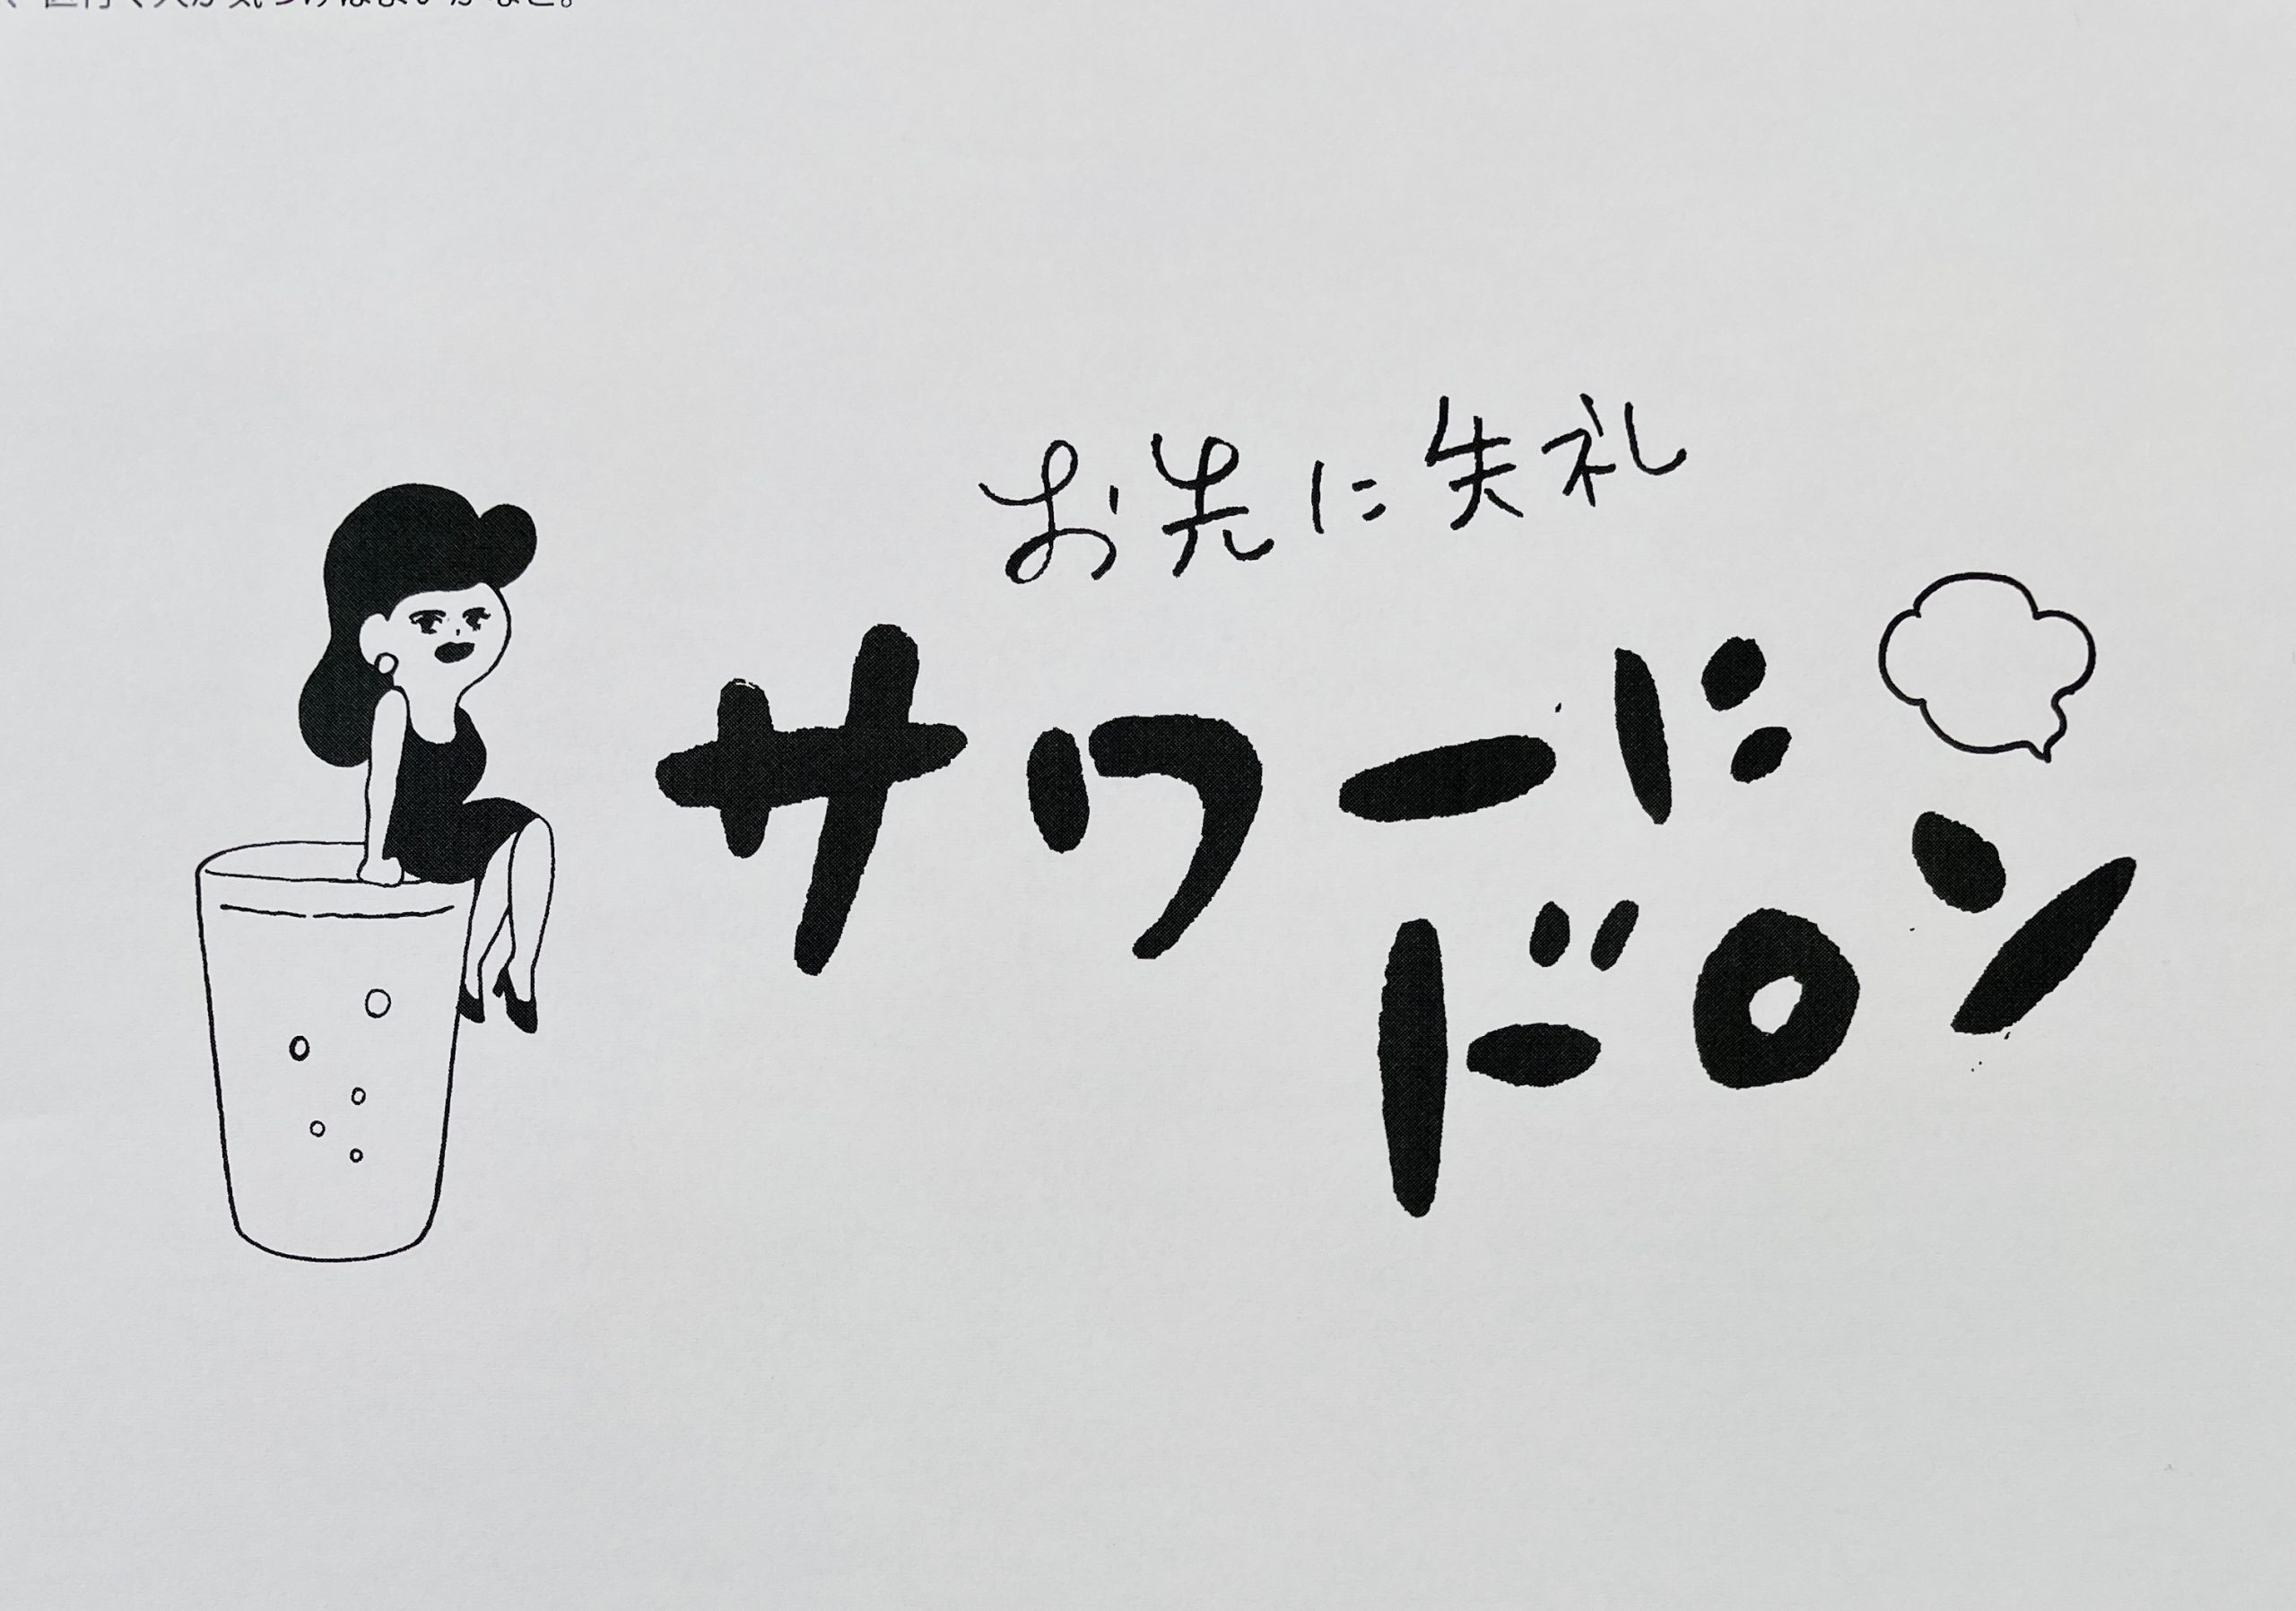 お先に失礼
サワーに
ドロン